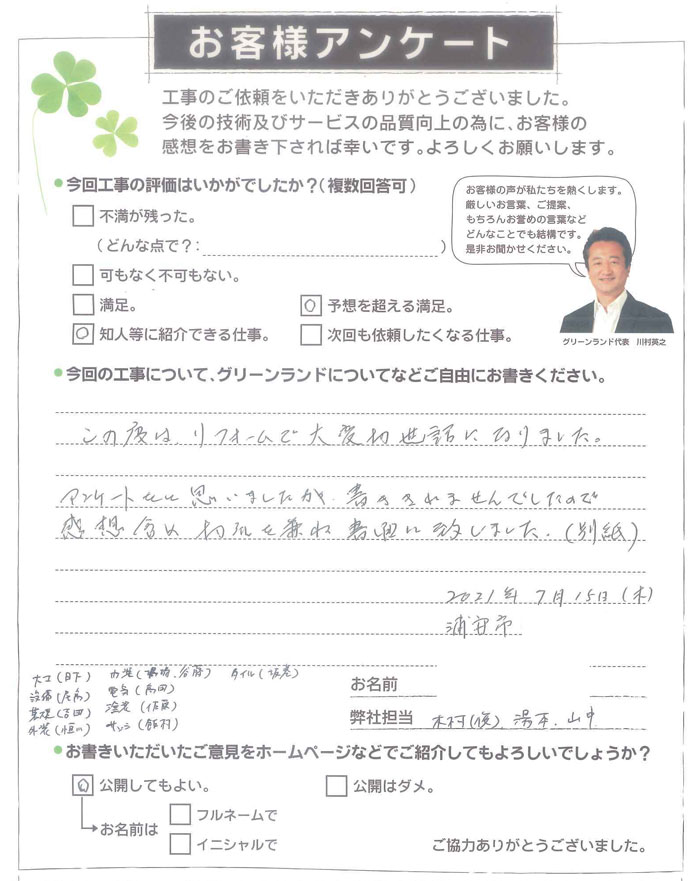 お客様アンケート
工事のご依頼をいただきありがとうございました。
今後の技術及びサービスの品質向上の為に、お客様の
感想をお書き下されば幸いです。よろしくお願いします。
●今回工事の評価はいかがでしたか？（複数回答可）
不満が残った。
（どんな点で？：　　　）
可もなく不可もない。
満足。
予想を超える満足。
知人等に紹介できる仕事。
次回も依頼したくなる仕事。
お客様の声が私たちを熱くします。
厳しいお言葉、ご提案、
もちろんお誉めの言葉など
どんなことでも結構です。
是非お聞かせください。
グリーンランド代表　川村英之
●今回の工事について、グリーンランドについてなどご自由にお書きください。
この度は、リフォームで大変お世話になりました。
アンケートをと思いましたが、書ききれませんでしたので
感想含めお礼を兼ね書面に致しました。（別紙）
2021年7月15日（木）
浦安市
大工（日下）
内装（馬場、谷藤）
タイル
設備
電気（角田）
基礎（吉田）
塗装（佐藤）
外装（恒川）
サッシ
お名前
弊社担当　木村（俊）湯本、山中
●お書きいただいたご意見をホームページなどでご紹介してもよろしいでしょうか？
公開してもよい。
公開はダメ。
お名前は
フルネームで
イニシャルで
ご協力ありがとうございました。